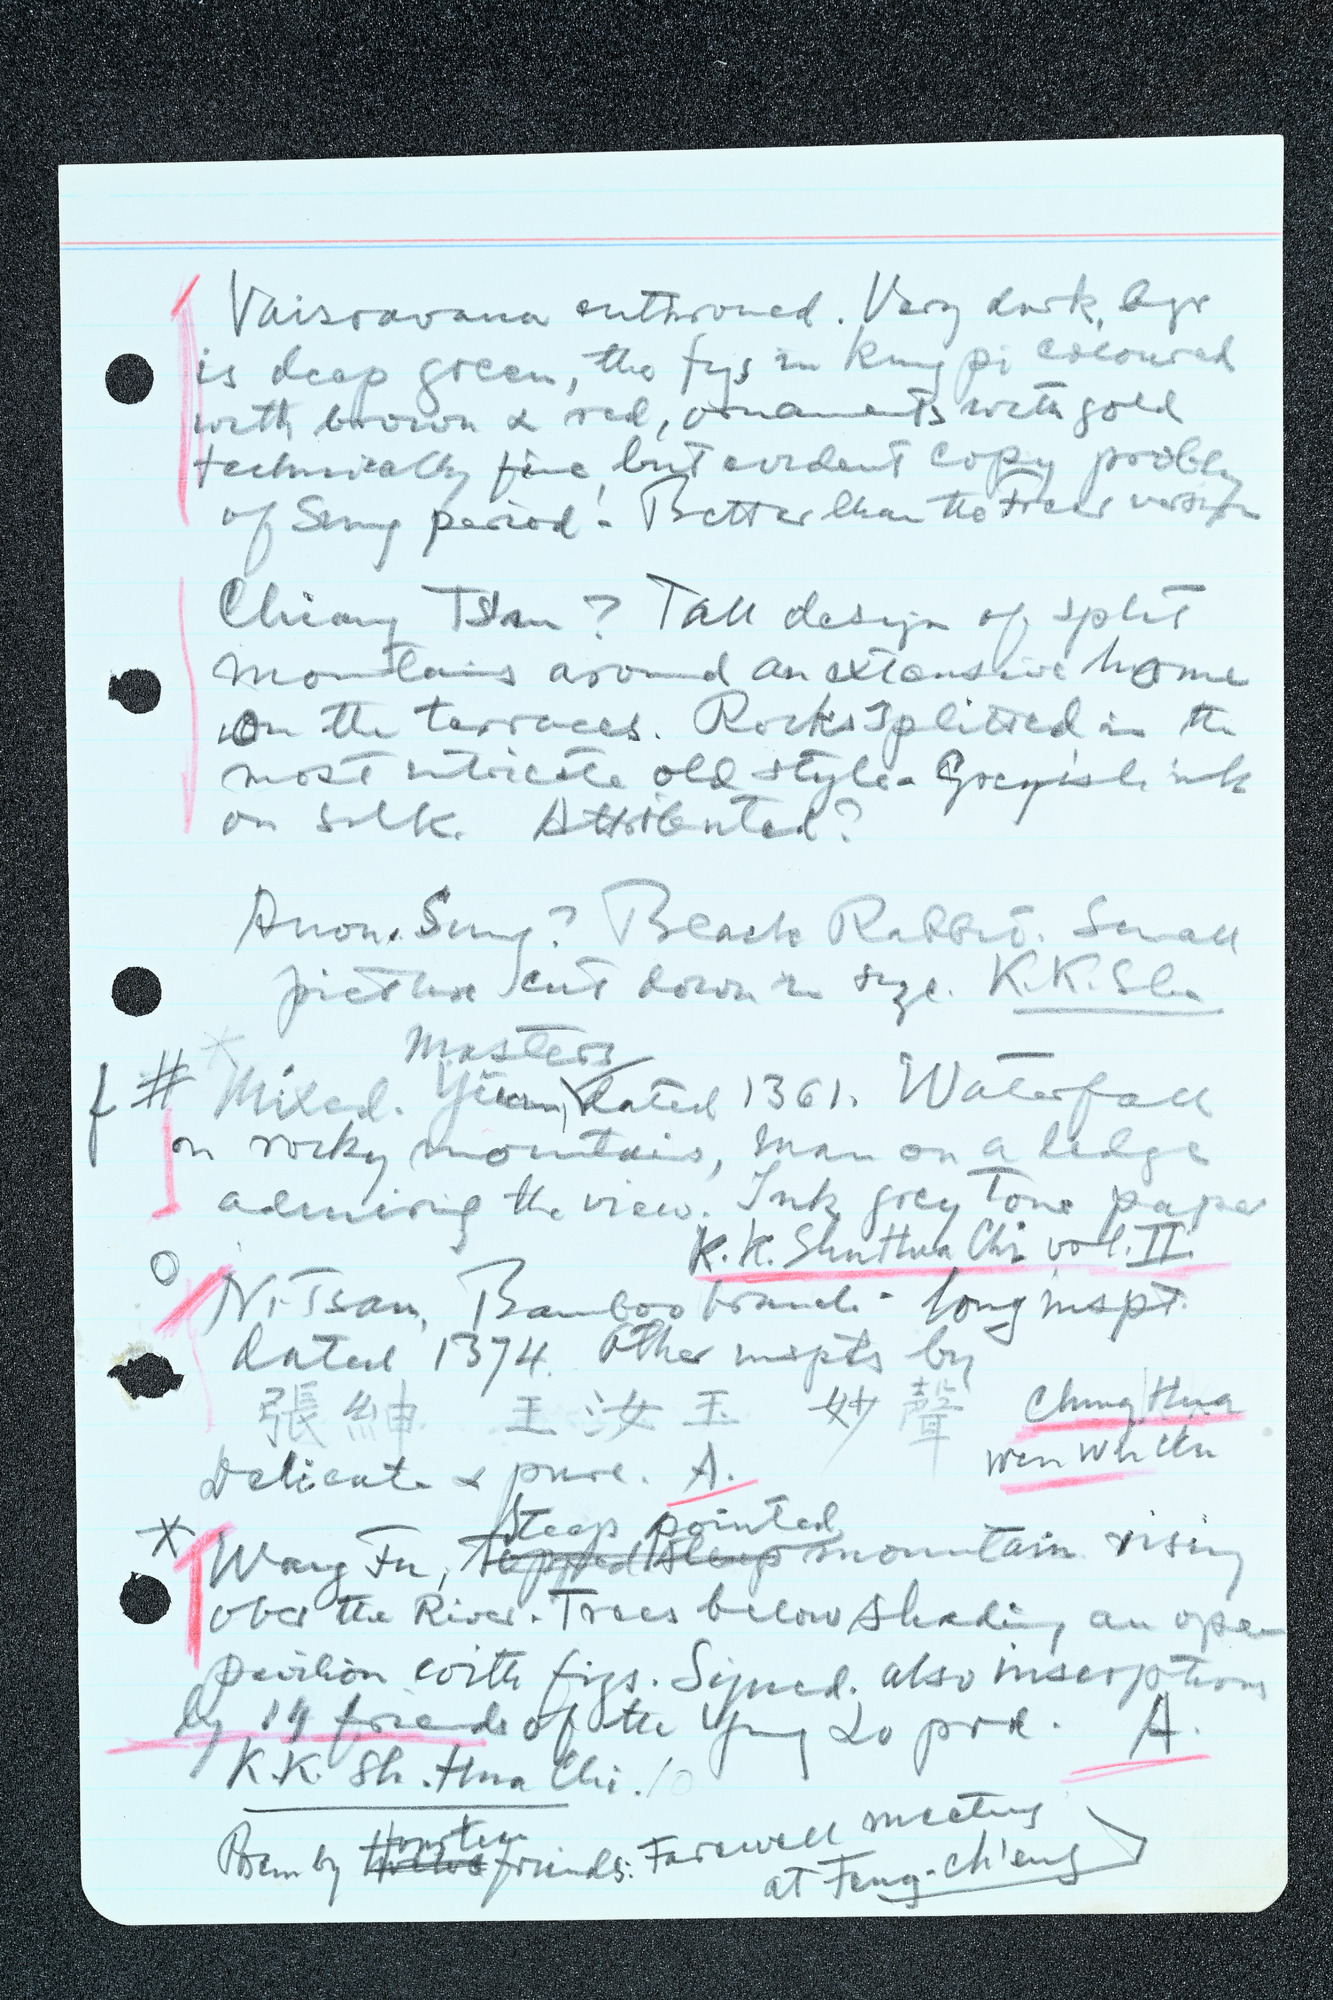 Vaisravana enthroned. Very dark, bgr
is deep green, the figs in kung pi coloured
with brown & red, ornaments with gold
technically fine, but evident copy probbly
of Sung period. Better than the Freer version
Chiang Ts'an? Tall design of split
mountains around an extensive home
on the terraces. Rocks splitted in the
most intricate old style. Greyish ink
on silk. Attributed?
Anon. Sung? Black Rabbit. Small
picture cut down in size. K.K. Shu
masters
f # * Mixed. Yüan, dated 1361. Waterfall
on rocky mountains, man on a ledge
admiring the view. Ink grey tone paper
K.K. Shu Hua Chi vol. II
Ni Tsan, Bamboo branch - long inspt.
dated 1374. Other inspts by
張紳 王汝玉 妙聲 Chung Hua
Wen Wu
Delicate & pure. A.
Steep pointed
* Wang Fu, mountain rising
over the River. Trees below shading an open
pavilion with figs. Signed. also inscriptions
by 14 friends of the Yung Lo prd. A.
K.K. Sh. Hua Chi. 10
fourteen
Poem by twelve friends: Farewell meeting
at Feng-ch'eng